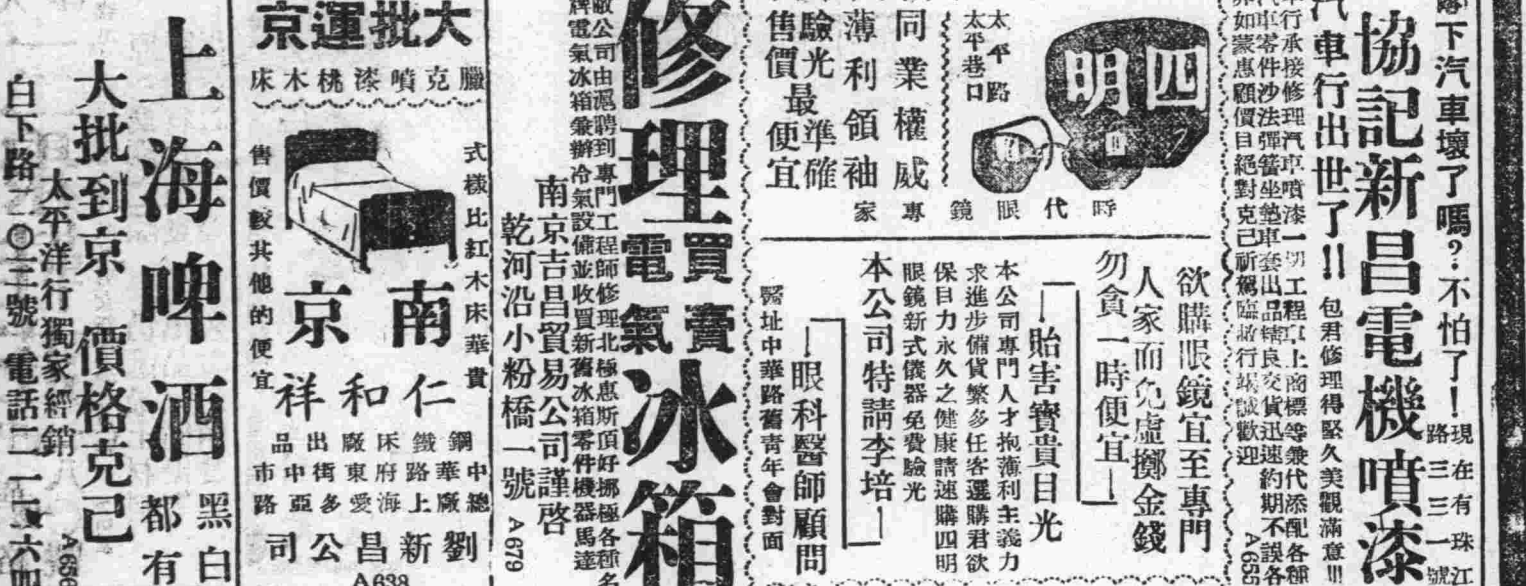 協記新昌電機噴漆
路下汽車壞了嗎?不怕了!
現在有珠江
路三三一號
汽車行出世了!!
包君修理得緊久美觀滿意!!!
車行承接修理汽車噴漆一切工程車上商標等兼代添配各種
汽車零件沙法彈簧坐墊車套出品精良交貨迅速約期不誤各
界如蒙惠顧價目絕對克己祈駕臨敝行竭誠歡迎
A655
四明
太平路
太平巷口
時代眼鏡專家
同業權威
薄利領袖
驗光準確
售價最便宜
欲購眼鏡宜至專門
人家而免虛擲金錢
勿貪一時便宜
貽害寶貴目光
本公司專門人才抱薄利主義力
求進步備貨繁多任客選購君欲
保目力永久之健康請速購四明
眼鏡新式儀器免費驗光
本公司特請李培
眼科醫師顧問
醫址中華路舊青年會對面
修理買賣電氣冰箱
敝公司由滬聘到專門工程師修理北極惠斯頂好挪極各種名
牌電氣冰箱兼辦冷氣設備並收買新舊冰箱零件機器馬達
南京吉昌貿易公司謹啓
乾河沿小粉橋一號
A679
大批運京
臘克噴漆桃木床
式樣比紅木床華貴
售價較其他的便宜
南京
仁和祥
鋼鐵床廠出品
中華路府東街中市
總廠上海愛多亞路
劉新昌公司
A638
上海啤酒
黑白
都有
大批到京 價格克己
太平洋行獨家經銷
A656
白下路二〇三號 電話二一一六四